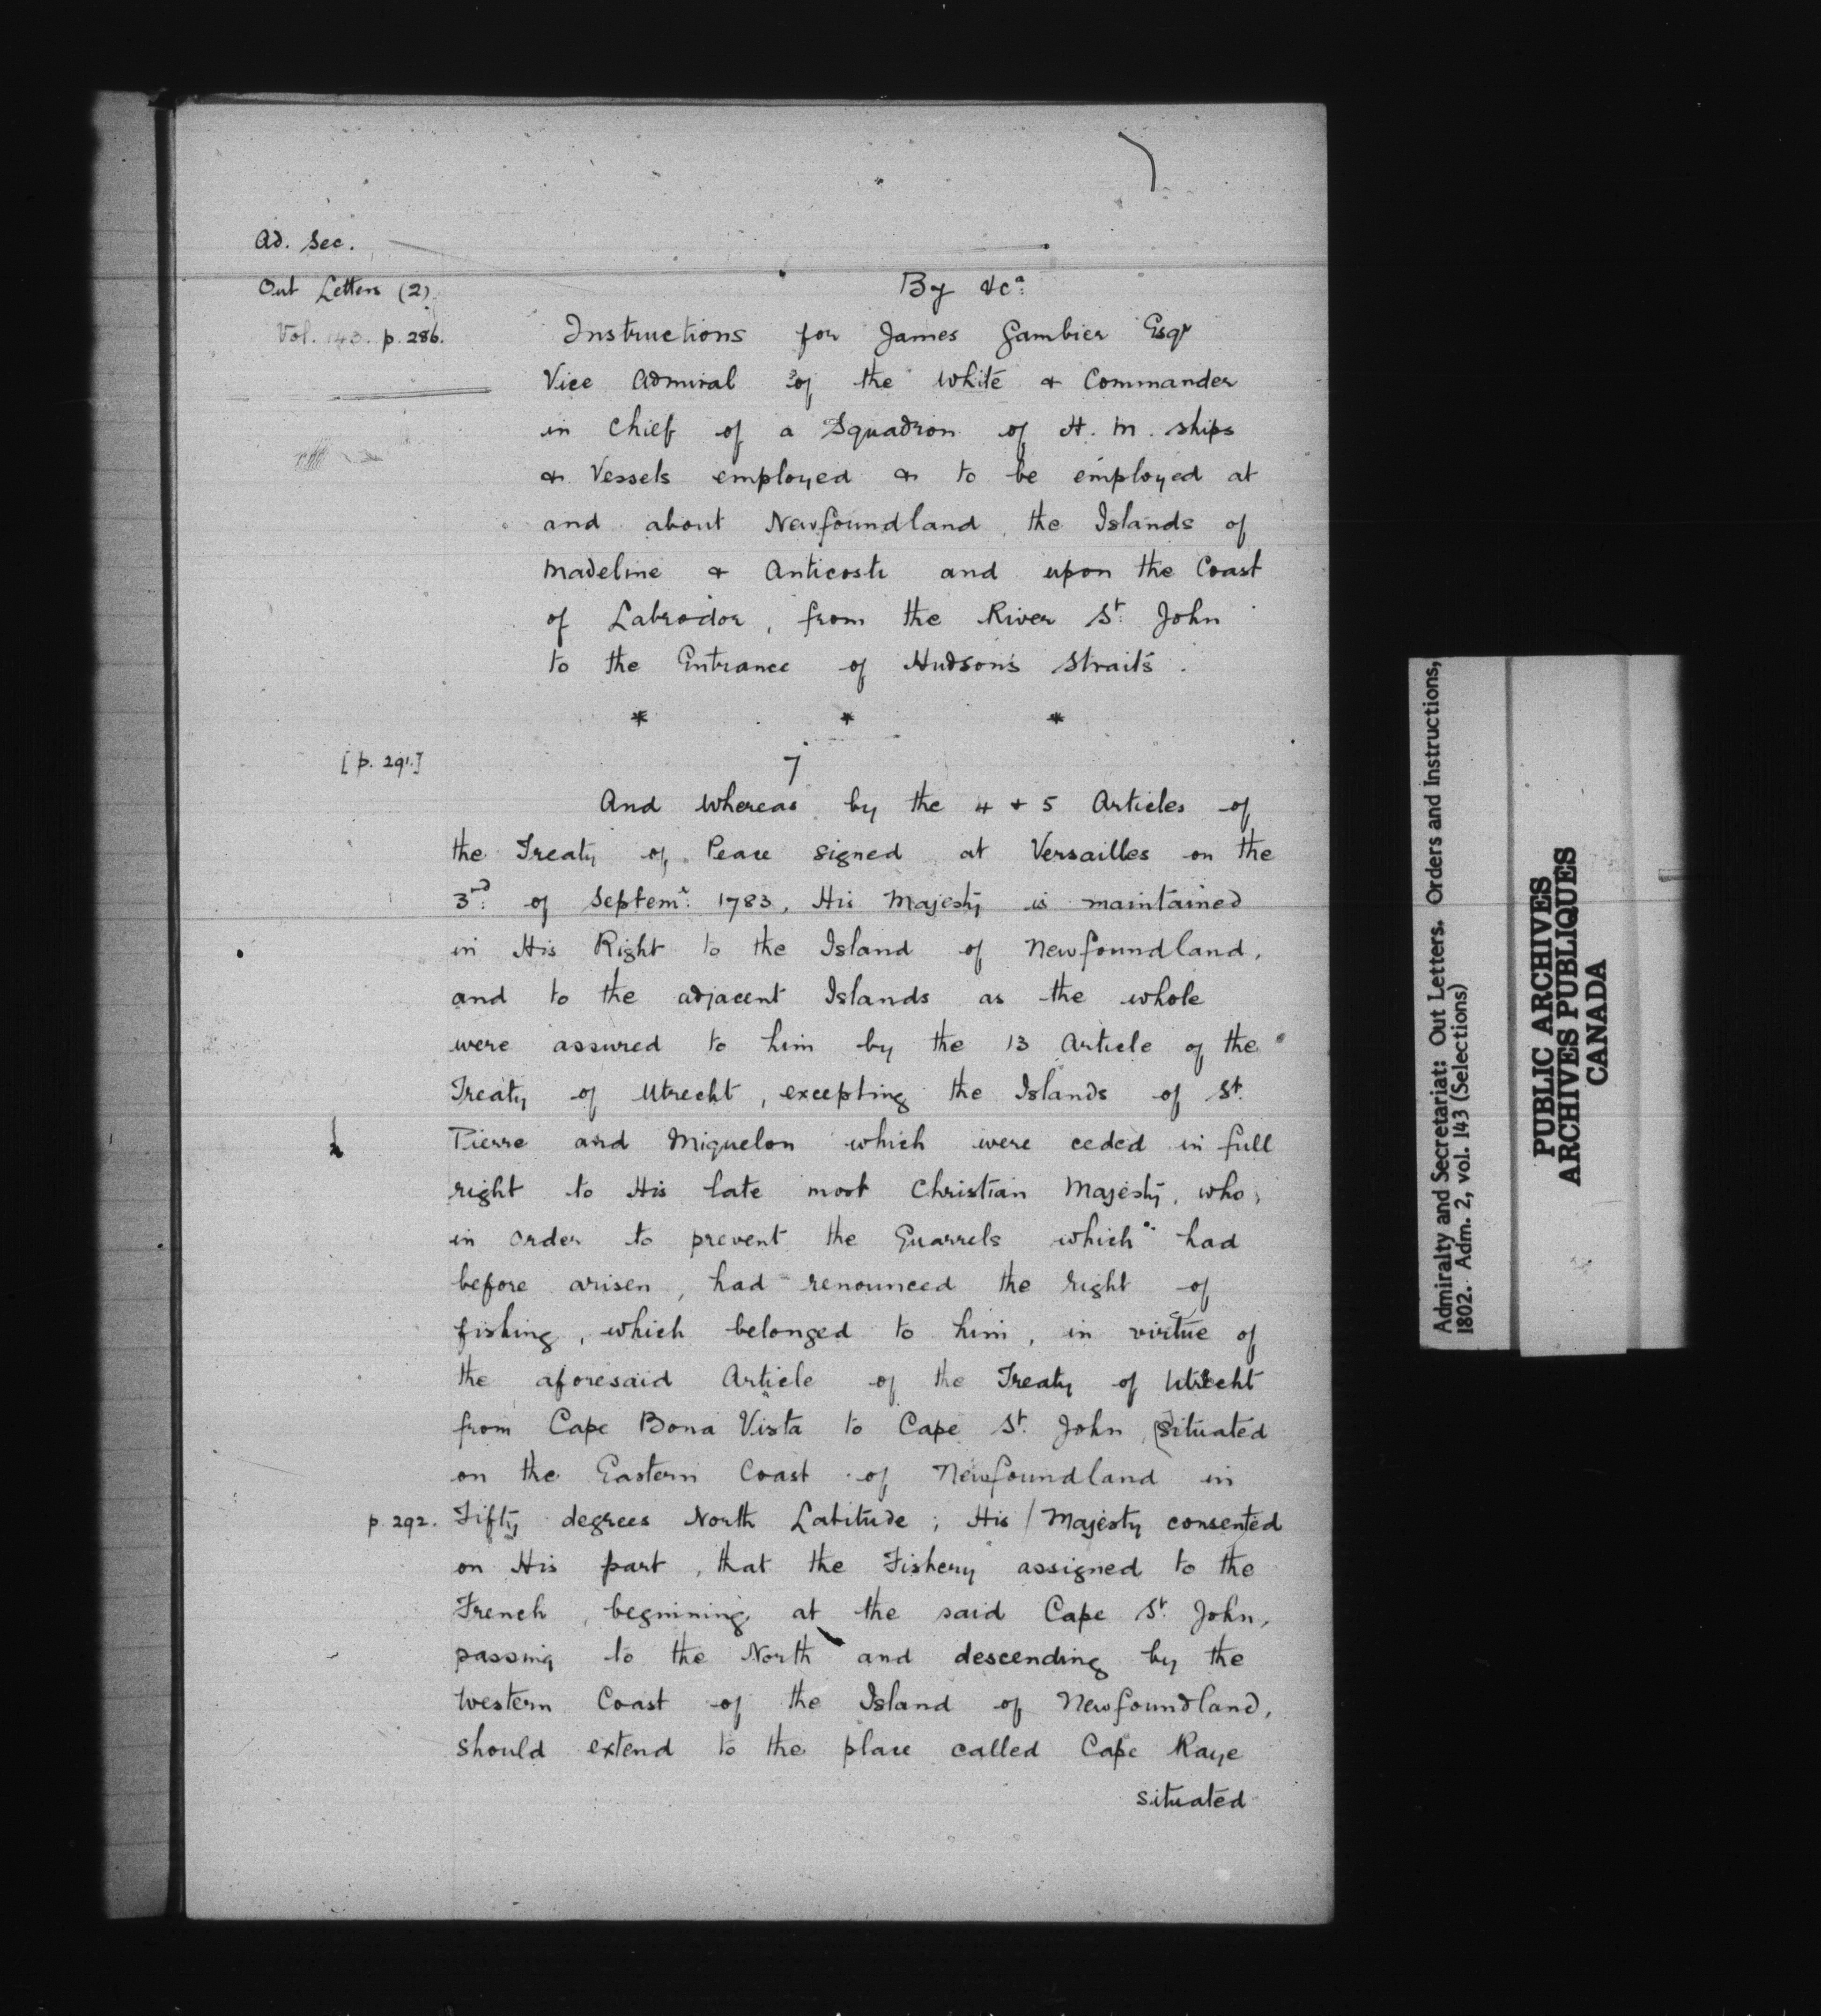 Ad. Sec.
Out Letters (2)
Vol. 143. p. 286.
By &c a
Instructions for James Gambier Esqr
Vice Admiral of the White & Commander
in Chief of a Squadron of H. M. Ships
& Vessels employed & to be employed at
and about Newfoundland, the Islands of
Madeline & Anticosti and upon the Coast
of Labrador, from the River St. John
to the Entrance of Hudson's Straits.
* * *
[p. 291.]
7
And whereas by the 4 & 5 Articles of
the Treaty of Peace signed at Versailles on the
3rd. of Septemr. 1783, His Majesty is maintained
in His Right to the Island of Newfoundland,
and to the adjacent Islands as the whole
were assured to him by the 13 Article of the
Treaty of Utrecht, excepting the Islands of St.
Pierre and Miquelon which were ceded in full
right to His late most Christian Majesty, who,
in order to prevent the Quarrels which had
before arisen, had renounced the right of
fishing, which belonged to him, in virtue of
the aforesaid Article of the Treaty of Utrecht
from Cape Bona Vista to Cape St. John, situated
on the Eastern Coast of Newfoundland in
p. 292. Fifty degrees North Latitude; His / Majesty consented
on His part, that the Fishery assigned to the
French, beginning at the said Cape St. John,
passing to the North and descending by the
Western Coast of the Island of Newfoundland,
should extend to the place called Cape Raye
situated
Admiralty and Secretariat: Out Letters. Orders and Instructions,
1802. Adm. 2, vol. 143 (Selections)
PUBLIC ARCHIVES
ARCHIVES PUBLIQUES
CANADA